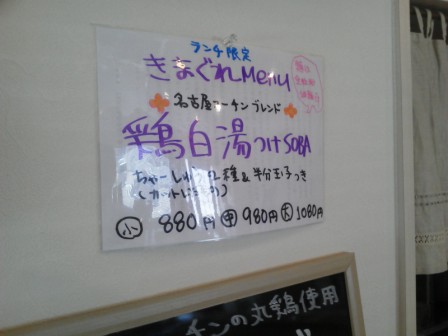 ランチ限定
きまぐれMenu
名古屋コーチンブレンド
鶏白湯つけSOBA
ちゃーしゅー2種&半分玉子つき
小 880円 中 980円 大 1080円
チンの丸鶏使用